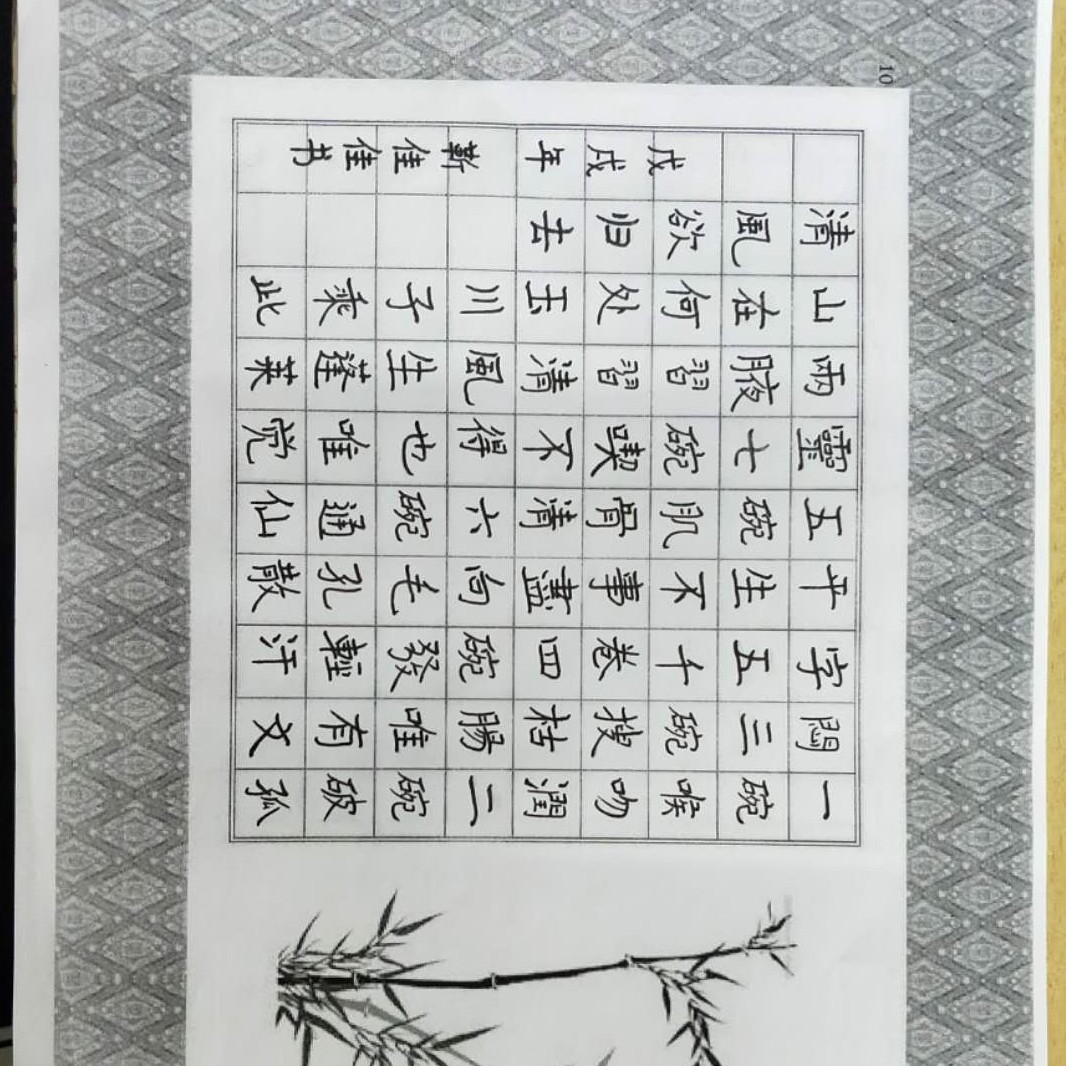 一碗喉吻潤二碗破孤
悶三碗搜枯腸唯有文
字五千卷四碗發輕汗
平生不事盡向毛孔散
五碗肌骨清六碗通仙
靈七碗喫不得也唯觉
兩腋習習清風生蓬莱
山在何处玉川子乘此
清風欲归去
戊戌年靳佳佳书
10